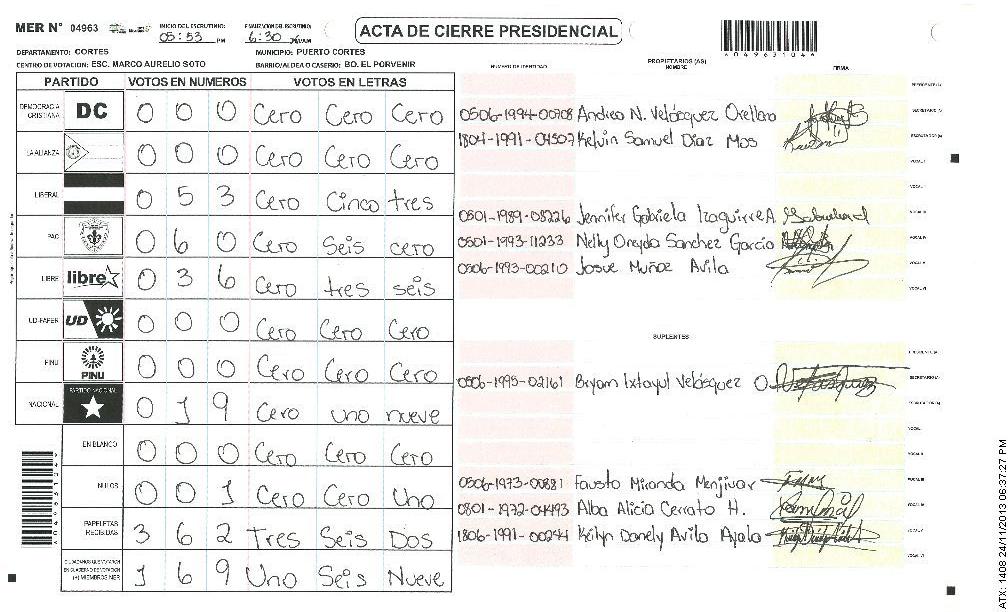 MER N° 04963 INICIO DEL ESCRUTINIO: 05:53 PM FINALIZACION DEL ESCRUTINIO: 6:30 ACTA DE CIERRE PRESIDENCIAL *04963104*
DEPARTAMENTO: CORTES MUNICIPIO: PUERTO CORTES
CENTRO DE VOTACION: ESC. MARCO AURELIO SOTO BARRIO/ALDEA O CASERIO: BO. EL PORVENIR
PARTIDO VOTOS EN NUMEROS VOTOS EN LETRAS
DEMOCRACIA CRISTIANA DC 0 0 0 Cero Cero Cero
LA ALIANZA 0 0 0 Cero Cero Cero
LIBERAL 0 5 3 Cero Cinco tres
PAC 0 6 0 Cero Seis cero
LIBRE libre 0 3 6 Cero tres seis
UD-FAPER UD 0 0 0 Cero Cero Cero
PINU PINU 0 0 0 Cero Cero Cero
NACIONAL PARTIDO NACIONAL 0 1 9 Cero uno nueve
EN BLANCO 0 0 0 Cero Cero Cero
NULOS 0 0 1 Cero Cero Uno
PAPELETAS RECIBIDAS 3 6 2 Tres Seis Dos
CIUDADANOS QUE VOTARON EN CUADERNO DE VOTACION (+) MIEMBROS MER 1 6 9 Uno Seis Nueve
NUMERO DE IDENTIDAD PROPIETARIOS (AS) NOMBRE FIRMA
PRESIDENTE (A)
0506-1994-00908 Andrea N. Velásquez Orellana SECRETARIO (A)
1804-1991-04507 Kelvin Samuel Díaz Mos ESCRUTADOR (A)
VOCAL I
VOCAL II
0501-1989-08226 Jennifer Gabriela Izaguirre A VOCAL III
0501-1993-11233 Nelly Oneyda Sanchez García VOCAL IV
0506-1993-00210 Josue Muñoz Avila VOCAL V
VOCAL VI
SUPLENTES
PRESIDENTE (A)
0506-1995-02161 Bryam Ixtayul Velásquez O. SECRETARIO (A)
ESCRUTADOR (A)
VOCAL I
VOCAL II
0506-1973-00881 Fausto Miranda Menjivar VOCAL III
0801-1972-04493 Alba Alicia Cerrato H. VOCAL IV
1806-1991-00244 Keilyn Danely Avila Ayala VOCAL V
VOCAL VI
ATX: 1408 24/11/2013 06:37:27 PM